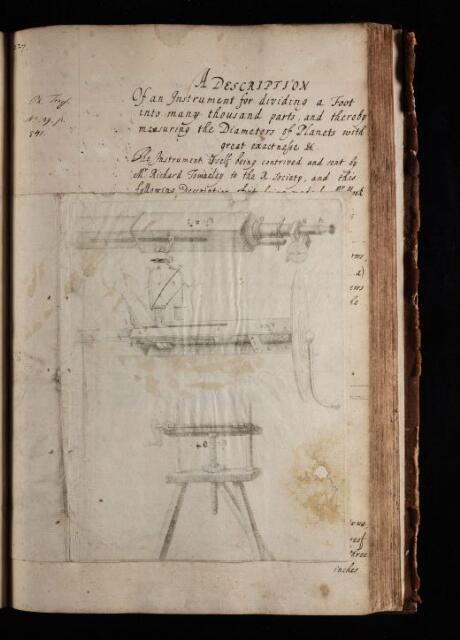 227.
Ph. Trans.
No. 29. p.
541.
A DESCRIPTION
Of an Instrument for dividing a Foot
into many thousand parts, and thereby
measuring the Diameters of Planets with
great exactnesse &c
The Instrument it self being contrived and sent by
Mr. Richard Towneley to the R Society, and this
following Description of it being made by Mr Hook
inches